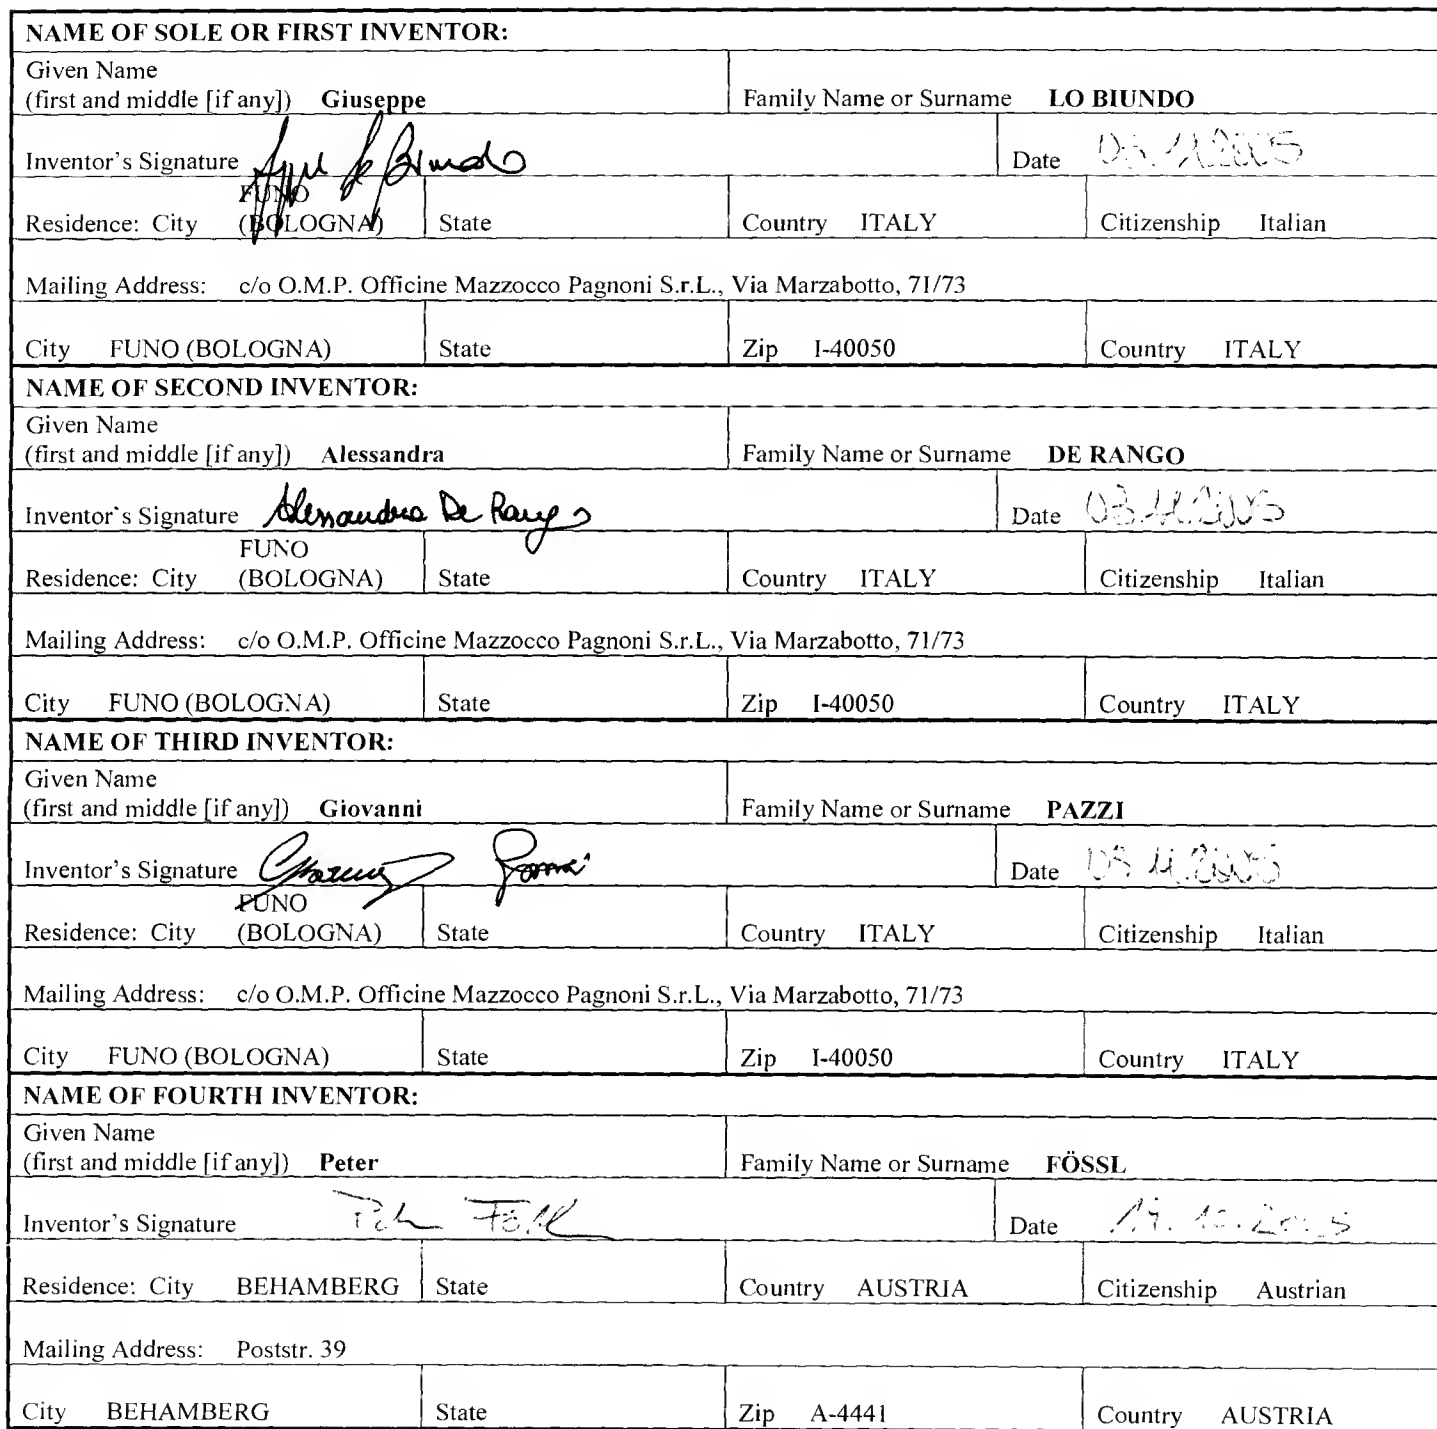 NAME OF SOLE OR FIRST INVENTOR:
Given Name
(first and middle [if any]) Giuseppe Family Name or Surname LO BIUNDO
Inventor's Signature Date 03.11.2005
FUNO
Residence: City (BOLOGNA) State Country ITALY Citizenship Italian
Mailing Address: c/o O.M.P. Officine Mazzocco Pagnoni S.r.L., Via Marzabotto, 71/73
City FUNO (BOLOGNA) State Zip I-40050 Country ITALY
NAME OF SECOND INVENTOR:
Given Name
(first and middle [if any]) Alessandra Family Name or Surname DE RANGO
Inventor's Signature Alessandra De Rango Date 03.11.2005
FUNO
Residence: City (BOLOGNA) State Country ITALY Citizenship Italian
Mailing Address: c/o O.M.P. Officine Mazzocco Pagnoni S.r.L., Via Marzabotto, 71/73
City FUNO (BOLOGNA) State Zip I-40050 Country ITALY
NAME OF THIRD INVENTOR:
Given Name
(first and middle [if any]) Giovanni Family Name or Surname PAZZI
Inventor's Signature Date 03.11.2005
FUNO
Residence: City (BOLOGNA) State Country ITALY Citizenship Italian
Mailing Address: c/o O.M.P. Officine Mazzocco Pagnoni S.r.L., Via Marzabotto, 71/73
City FUNO (BOLOGNA) State Zip I-40050 Country ITALY
NAME OF FOURTH INVENTOR:
Given Name
(first and middle [if any]) Peter Family Name or Surname FÖSSL
Inventor's Signature Date
Residence: City BEHAMBERG State Country AUSTRIA Citizenship Austrian
Mailing Address: Poststr. 39
City BEHAMBERG State Zip A-4441 Country AUSTRIA